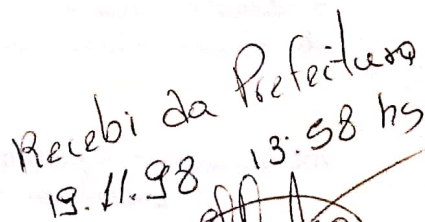 Recebi da Prefeitura
19.11.98 13:58 hs